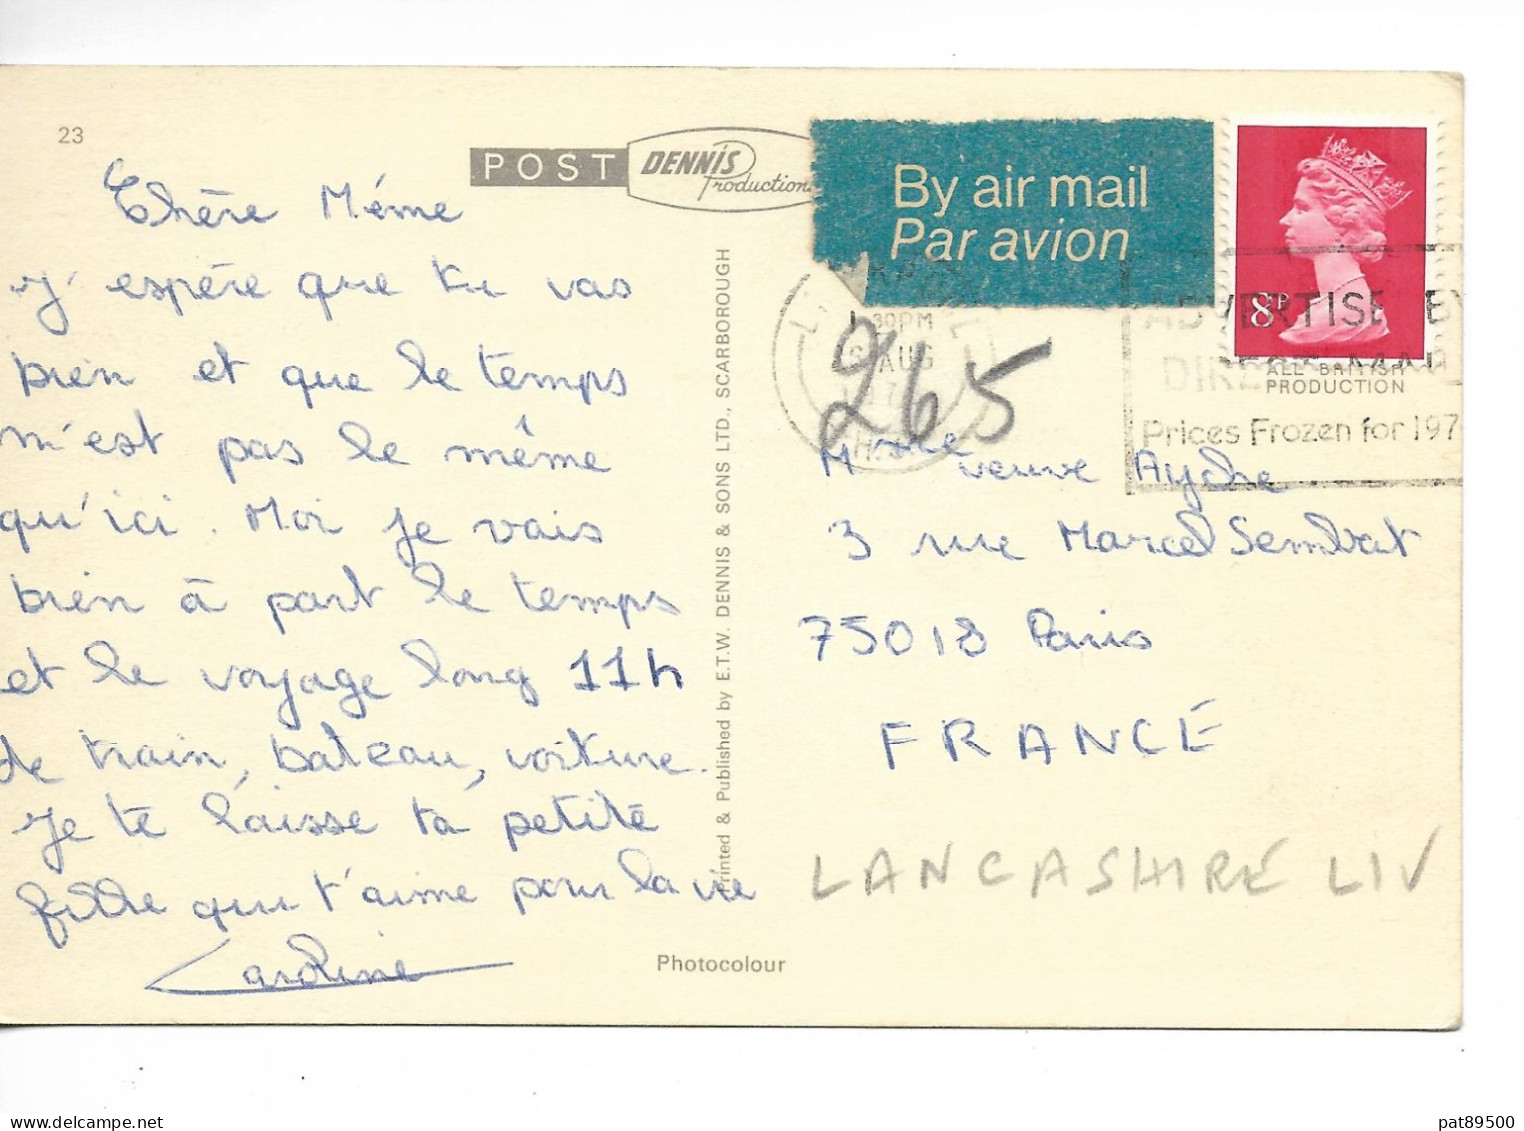 23
POST DENNIS Productions
By air mail
Par avion
8P
1 30PM
6 AUG
197
ADVERTISE BY
DIRECT MAIL
Prices Frozen for 197
ALL BRITISH
PRODUCTION
265
Chère Méme
j'espère que tu vas
bien et que le temps
m'est pas le même
qu'ici. Moi je vais
bien à part le temps
et le voyage long 11h
de train, bateau, voiture.
je te laisse ta petite
fille qui t'aime pour la vie
Caroline
Printed & Published by E.T.W. DENNIS & SONS LTD., SCARBOROUGH
Photocolour
Mme veuve Ayche
3 rue Marcel Sembat
75018 Paris
FRANCE
LANCASHIRE LIV
pat89500